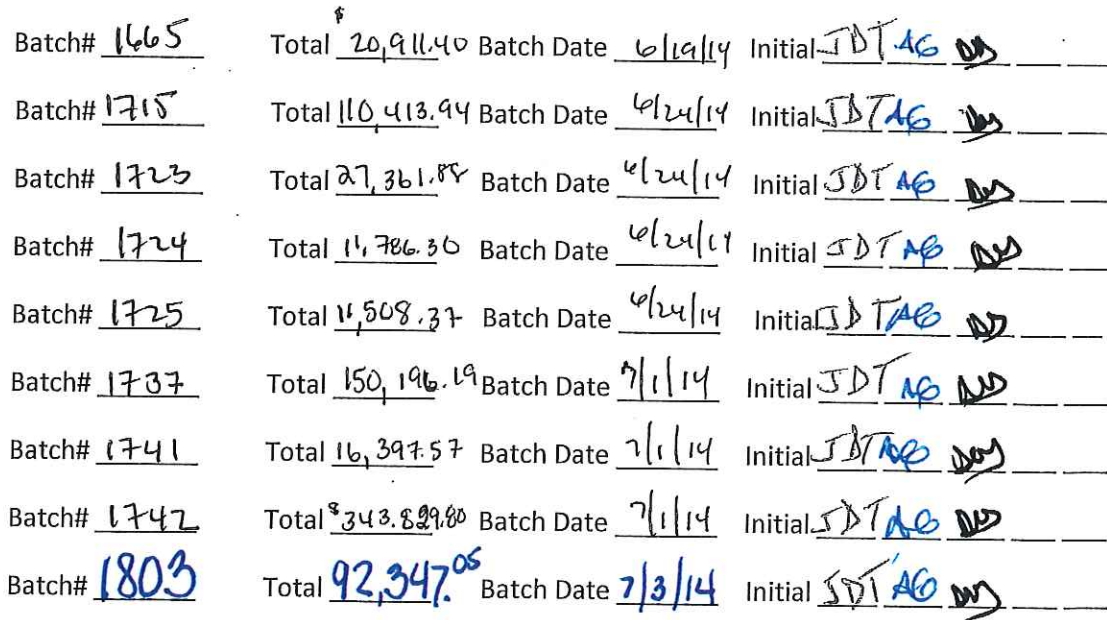 Batch# 1665 Total $20,911.40 Batch Date 6/19/14 Initial JDT AG
Batch# 1715 Total 110,413.94 Batch Date 6/24/14 Initial JDT AG
Batch# 1723 Total 27,361.88 Batch Date 6/24/14 Initial JDT AG
Batch# 1724 Total 11,786.30 Batch Date 6/24/14 Initial JDT AG
Batch# 1725 Total 11,508.37 Batch Date 6/24/14 Initial JDT AG
Batch# 1737 Total 150,196.19 Batch Date 7/1/14 Initial JDT AG
Batch# 1741 Total 16,397.57 Batch Date 7/1/14 Initial JDT AG
Batch# 1742 Total $343.829.80 Batch Date 7/1/14 Initial JDT AG
Batch# 1803 Total 92,347.05 Batch Date 7/3/14 Initial JDT AG